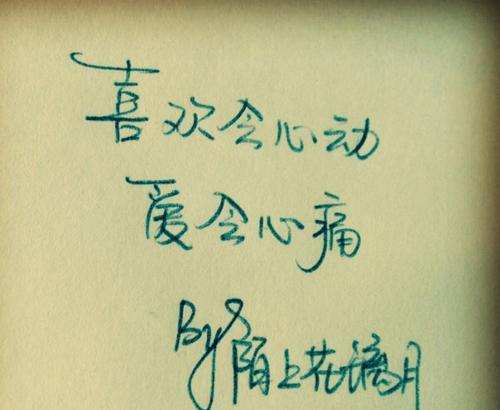 喜欢会心动
爱会心痛
By 陌上花璃月